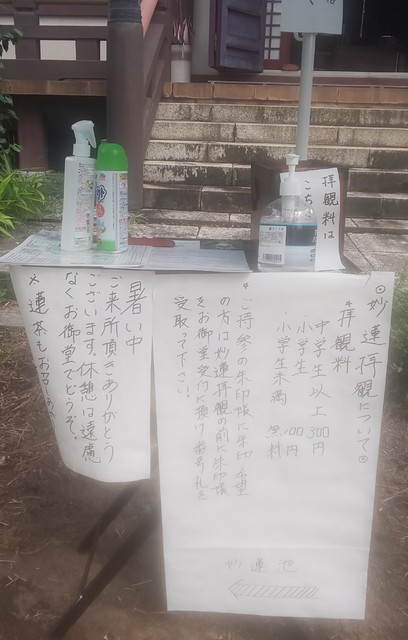 拝観料は
こち
◎妙蓮拝観について◎
*拝観料
中学生以上 300円
小学生 100円
小学生未満 無料
*ご持参の朱印帳に朱印希望
の方は妙蓮拝観の前に朱印帳
をお御堂受付に預け番号札を
受取って下さい。
妙蓮池
暑い中
ご来所頂きありがとう
ございます。休憩は遠慮
なくお御堂でどうぞ。
※蓮茶もお